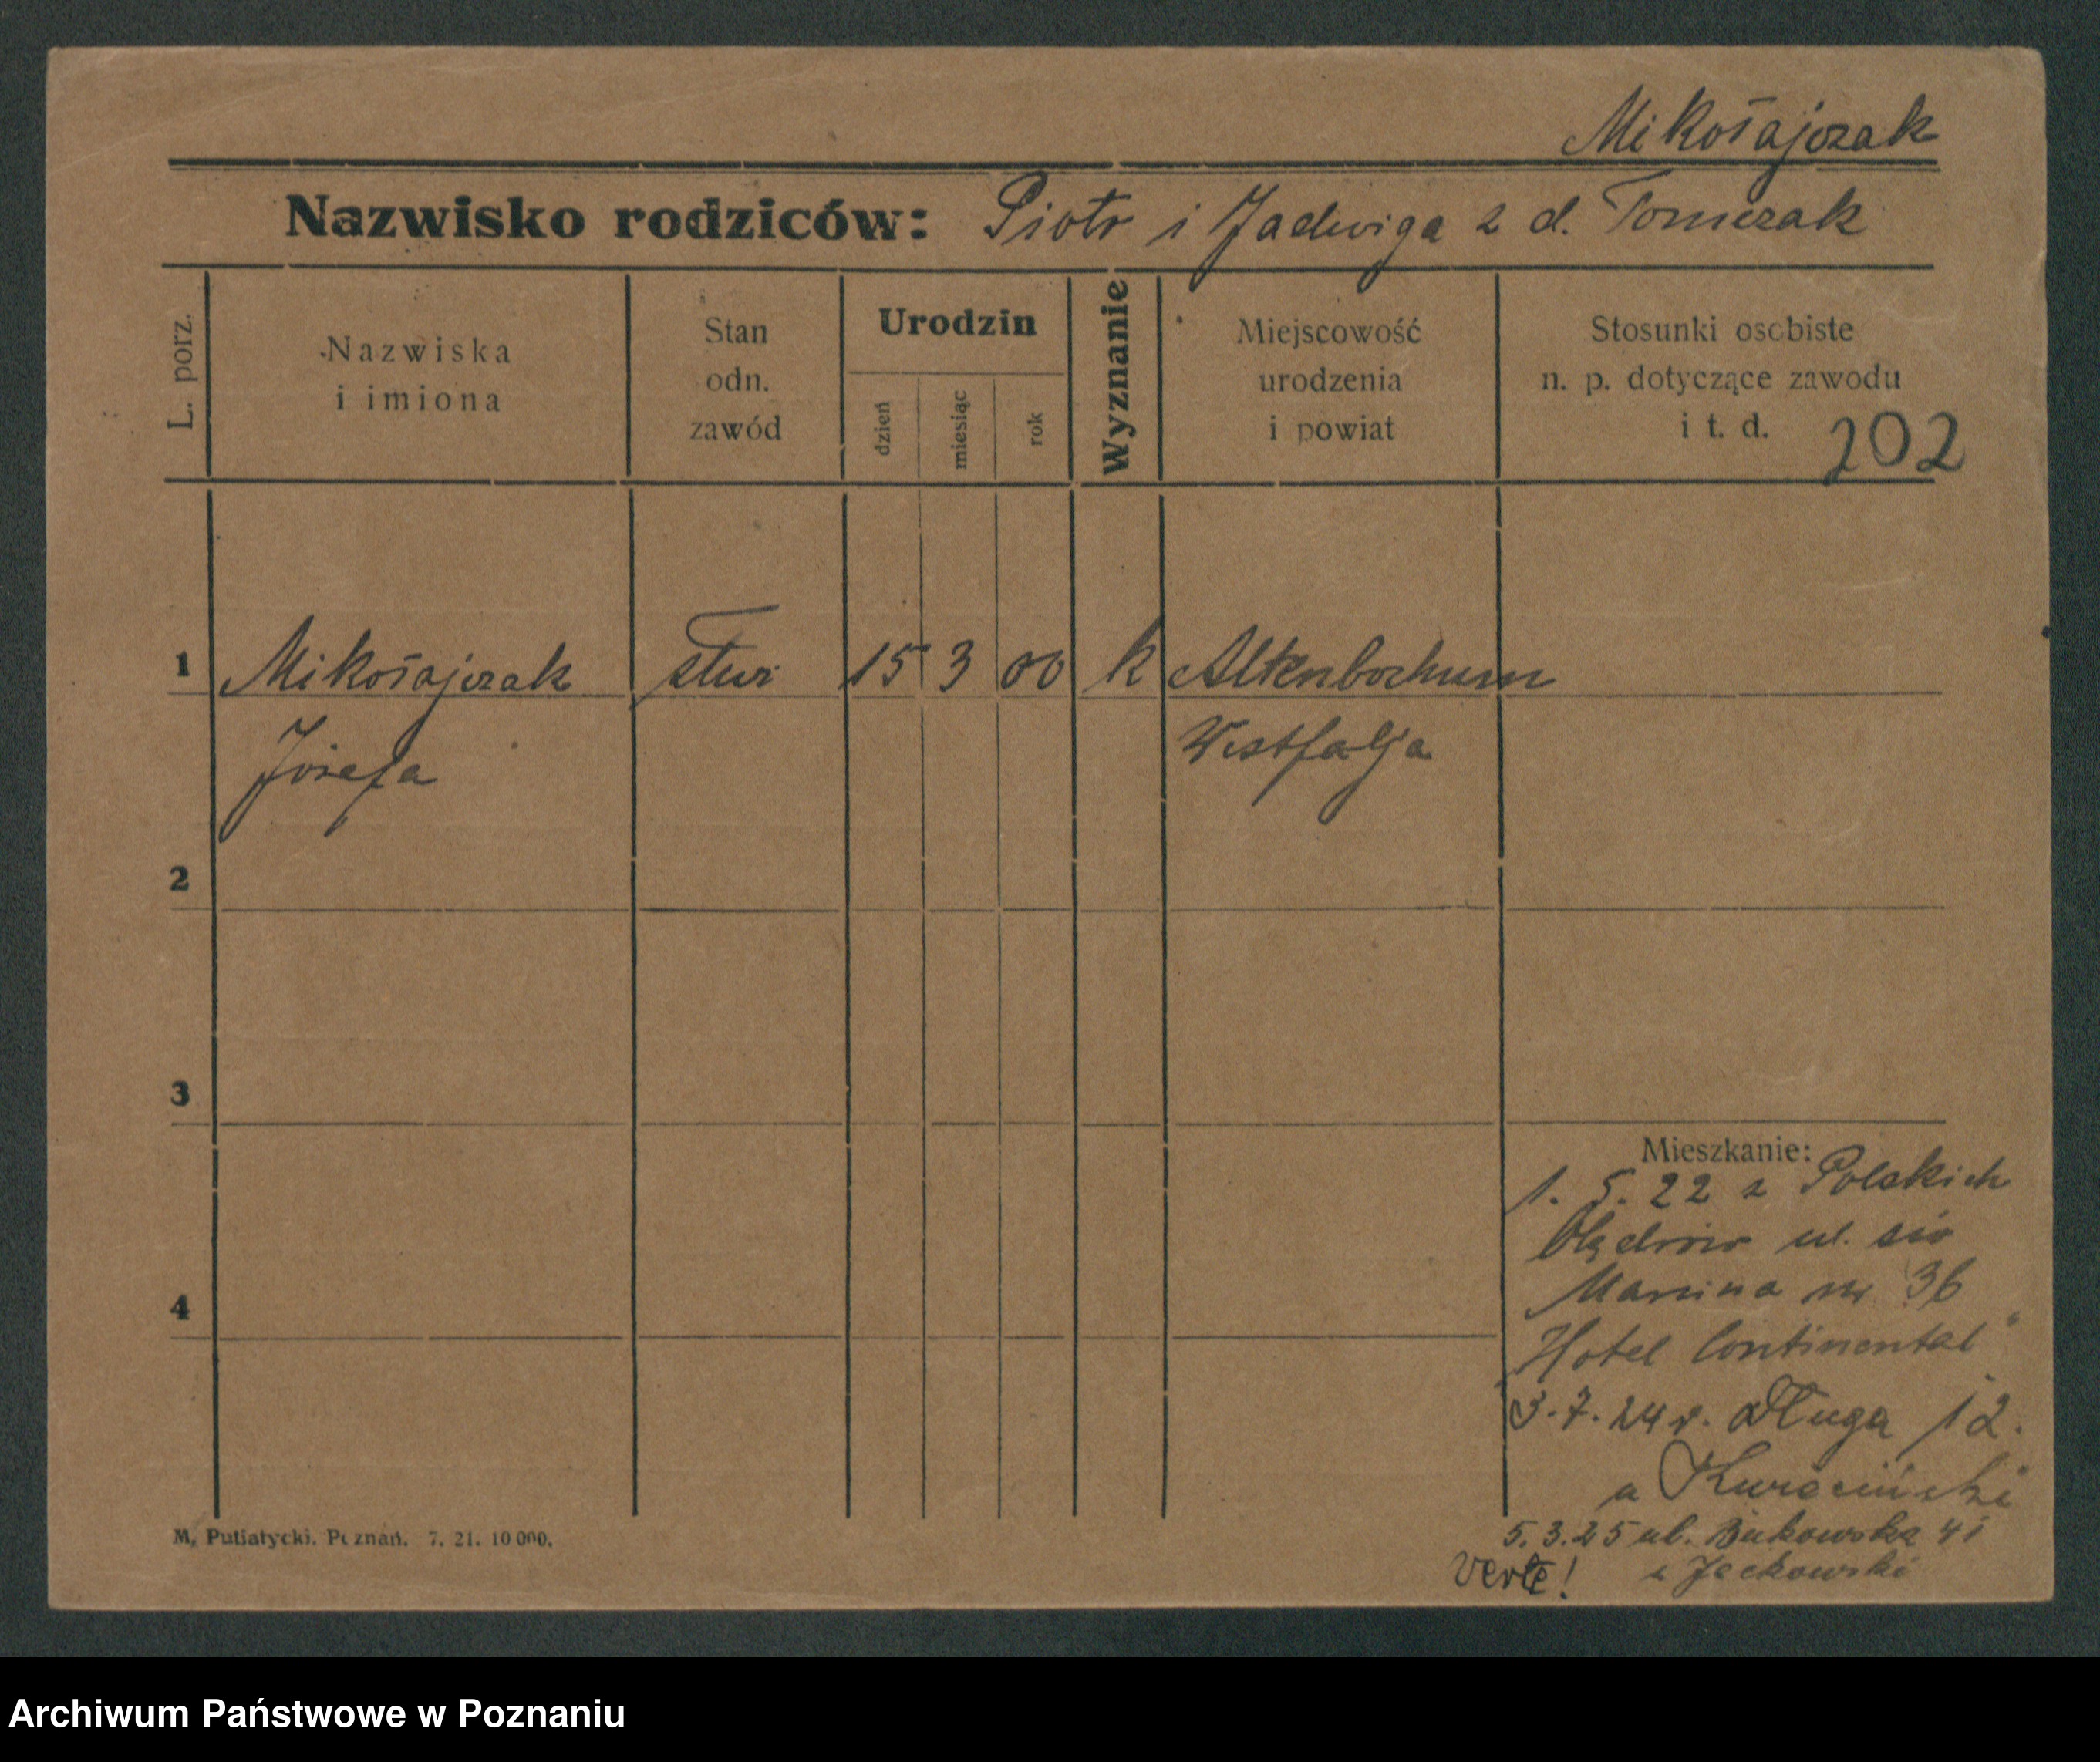 Mikołajczak
Nazwisko rodziców: Piotr i Jadwiga z d. Tomczak
L. porz.
Nazwiska
i imiona
Stan
odn.
zawód
Urodzin
dzień
miesiąc
rok
Wyznanie
Miejscowość
urodzenia
i powiat
Stosunki osobiste
n. p. dotyczące zawodu
i t. d.
202
1 Mikołajczak służ 15 3 00 k Altenbochum
Józefa Westfalja
2
3
4
Mieszkanie:
1. 5. 22 z Polskich
Olędrów ul. św
Marcina nr 36
"Hotel Continental"
3. 7. 24 r. Długa 12.
u
5. 3. 25 ul. Bukowska 41
u Jackowski
Verte!
M. Putiatycki. Poznań. 7. 21. 10 000.
Archiwum Państwowe w Poznaniu